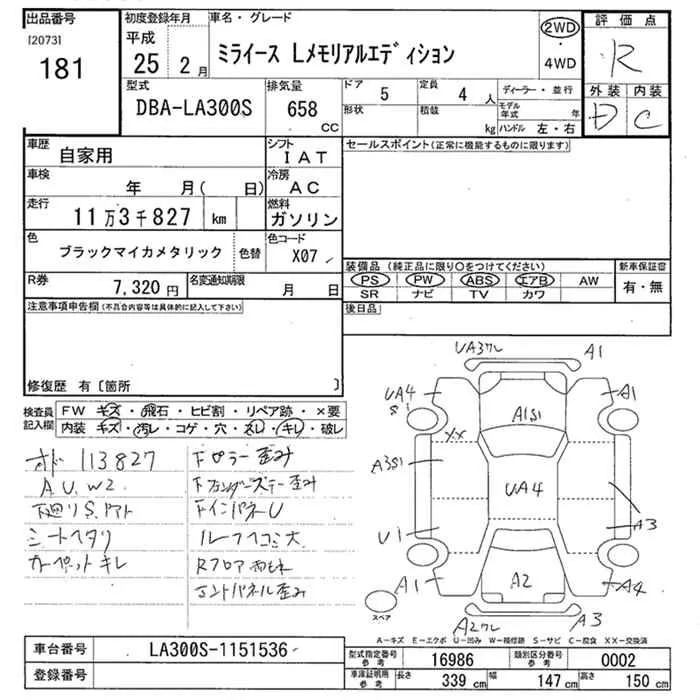 出品番号
[2073]
181
初度登録年月
平成
25 2 月
車名・グレード
ミライース Lメモリアルエディション
2WD
・
4WD
評価点
R
外装 内装
D C
型式
DBA-LA300S
排気量
658
CC
ドア 5
形状
定員 4 人
積載 kg
ディーラー・並行
モデル年式 年
ハンドル 左・右
車歴 自家用
シフト IAT
車検 年 月( 日)
冷房 AC
走行 11万3千827 km
燃料 ガソリン
色 ブラックマイカメタリック 色替
色コード X07
R券 7,320 円
名変通知期限 月 日
セールスポイント(正常に機能するものに限ります)
装備品(純正品に限り○をつけてください)
PS PW ABS エアB AW
SR ナビ TV カワ
新車保証書
有・無
後日品
注意事項申告欄(不具合内容等は具体的に記入して下さい)
修復歴 有〔箇所 〕
検査員
記入欄
FW キズ・飛石・ヒビ割・リペア跡・×要
内装 キズ・汚レ・コゲ・穴・スレ・キレ・破レ
オド 113827
A U, W2
下廻りS, アト
シートヘタリ
カーペットキレ
Fピラー歪み
FインパネU
ルーフヘコミ大
Rフロア
エンドパネル歪み
UA3ワレ A1
UA4
S1
A1
A1S1
XX
A3S1
UA4
U1
A3
A1
A2
A4
A2ワレ A3
スペア
A-キズ E-エクボ U-凹み W-補修跡 S-サビ C-腐食 XX-交換済
車台番号 LA300S-1151536
登録番号
型式指定番号
参考
16986
類別区分番号
参考
0002
車庫証明用
参考
長さ 339 cm 幅 147 cm 高さ 150 cm